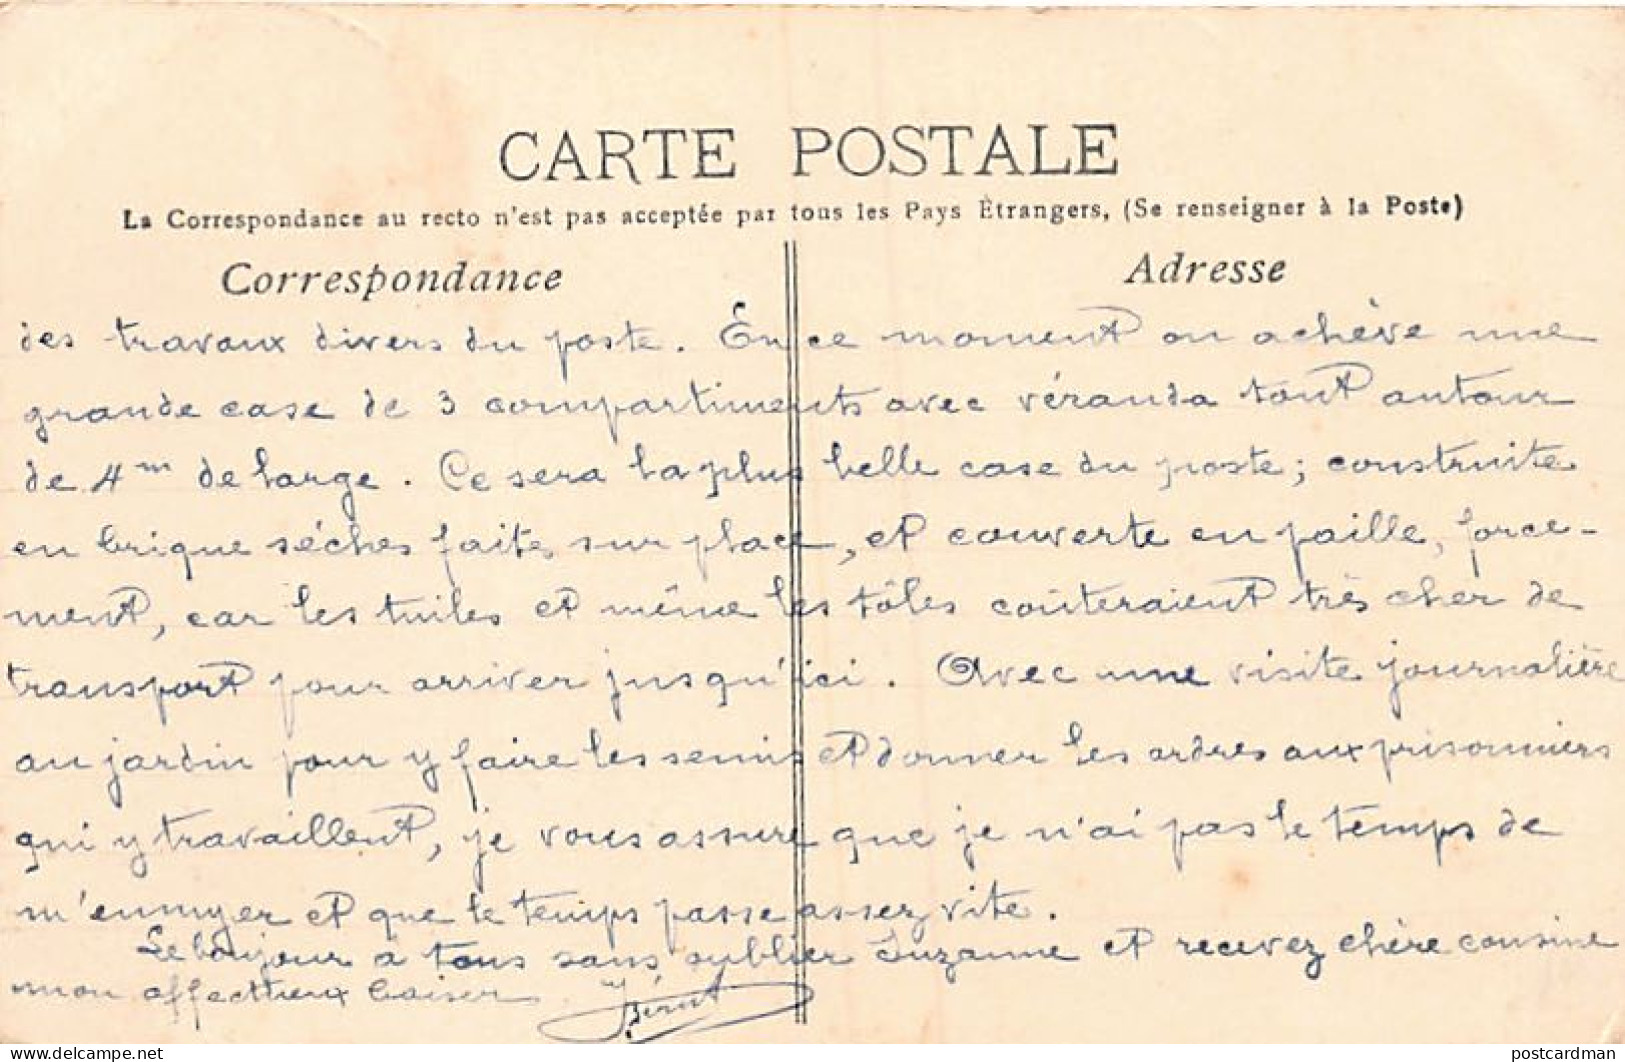 CARTE POSTALE
La Correspondance au recto n'est pas acceptée par tous les Pays Étrangers, (Se renseigner à la Poste)
Correspondance
Adresse
des travaux divers du poste. En ce moment on achève une
grande case de 3 compartiments avec véranda tout autour
de 4m de large. Ce sera la plus belle case du poste; construite
en brique séches faites sur place, et couverte en paille, force-
ment, car les tuiles et même les tôles coûteraient très cher de
transport pour arriver jusqu'ici. Avec une visite journalière
au jardin pour y faire les semis et donner les ordres aux prisonniers
qui y travaillent, je vous assure que je n'ai pas le temps de
m'ennuyer et que le temps passe assez vite.
Le bonjour à tous sans oublier Suzanne et recevez chère cousine
mon affectueux baiser
delcampe.net
postcardman